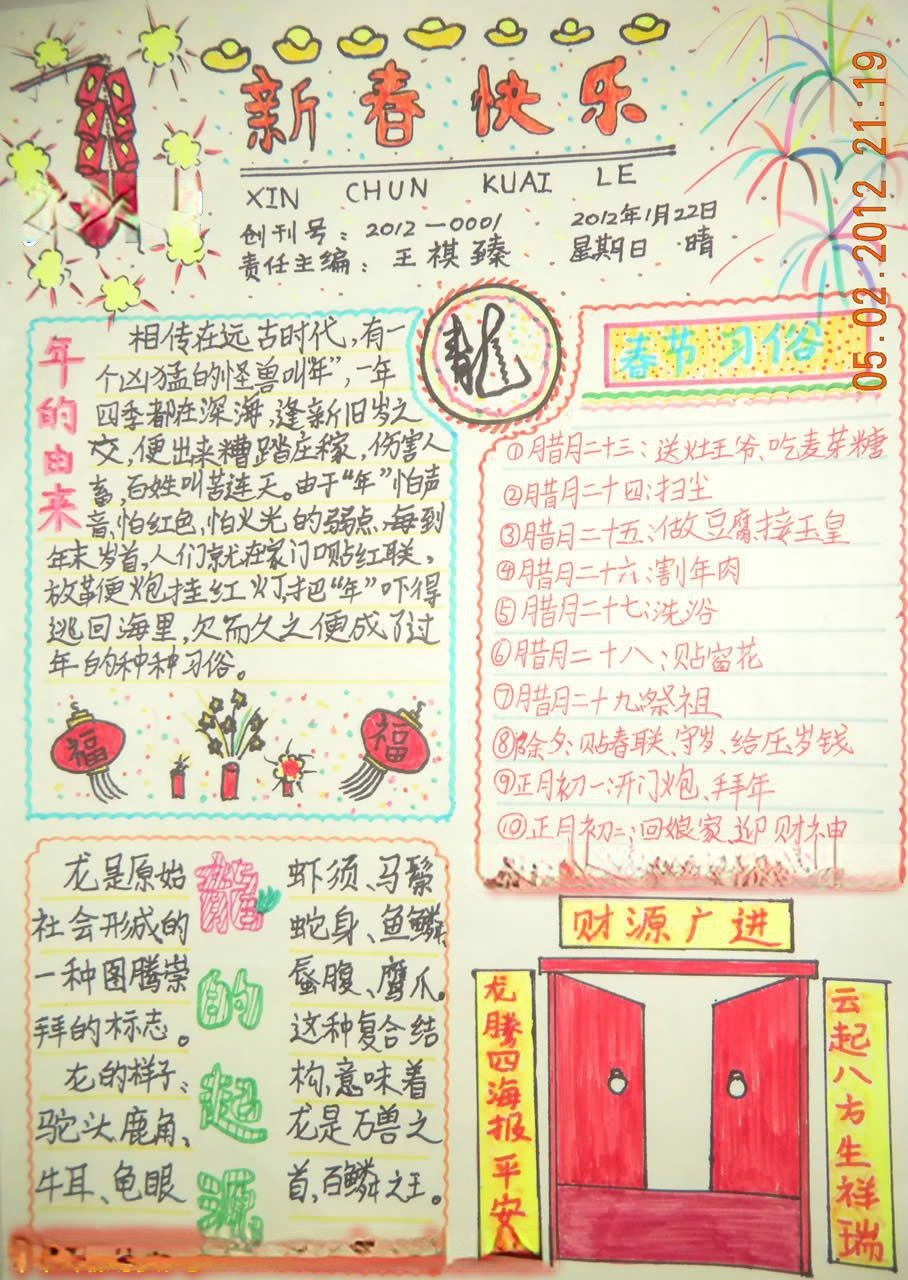 新春快乐
XIN CHUN KUAI LE
创刊号：2012—0001
2012年1月22日
责任主编：王祺臻
星期日 晴
05.02.2012 21:19
年的由来
相传在远古时代，有一
个凶猛的怪兽叫“年”，一年
四季都在深海，逢新旧岁之
交，便出来糟踏庄稼，伤害人
畜，百姓叫苦连天。由于“年”怕声
音，怕红色，怕火光的弱点，每到
年末岁首，人们就在家门呗贴红联，
放革便炮挂红灯，把“年”吓得
逃回海里，欠而久之便成了过
年的种种习俗。
福
福
龍
春节习俗
①月腊月二十三：送灶王爷、吃麦芽糖
②月腊月二十四：扫尘
③月腊月二十五：做豆腐接玉皇
④月腊月二十六：割年肉
⑤月腊月二十七：洗浴
⑥月腊月二十八：贴窗花
⑦月腊月二十九：祭祖
⑧除夕：贴春联、守岁、给压岁钱
⑨正月初一：开门炮、拜年
⑩正月初二：回娘家、迎财神
龍的起源
龙是原始
社会形成的
一种图腾崇
拜的标志。
龙的样子：
驼头、鹿角、
牛耳、龟眼
虾须、马鬃
蛇身、鱼鳞、
蜃腹、鹰爪。
这种复合结
构，意味着
龙是百兽之
首，百鳞之王。
财源广进
龙腾四海报平安
云起八方生祥瑞